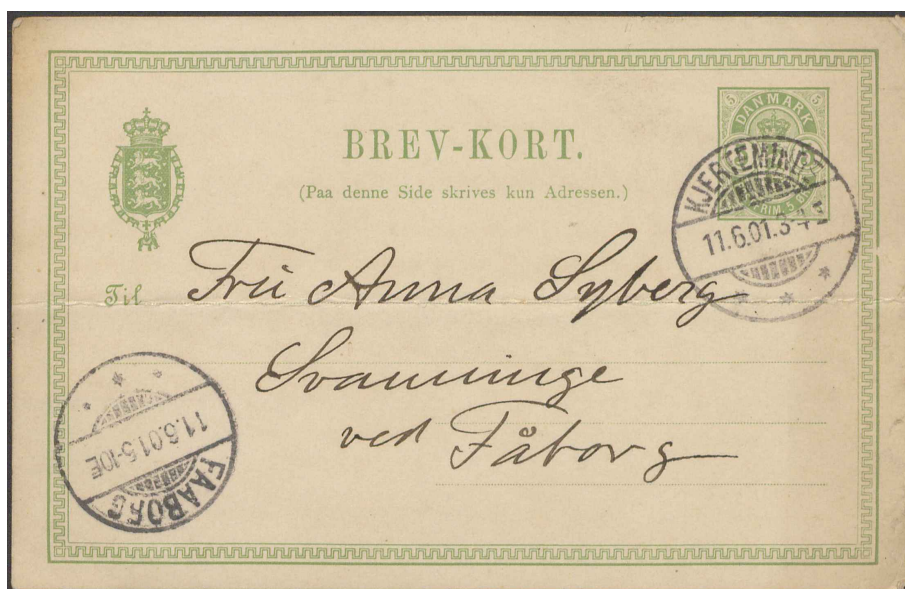 BREV-KORT.
(Paa denne Side skrives kun Adressen.)
5 DANMARK 5
KJERTEMINDE
11.6.01.3-4E
Til Fru Anna Syberg
Svanninge
ved Fåborg
11.6.01.5-10E
FAABORG